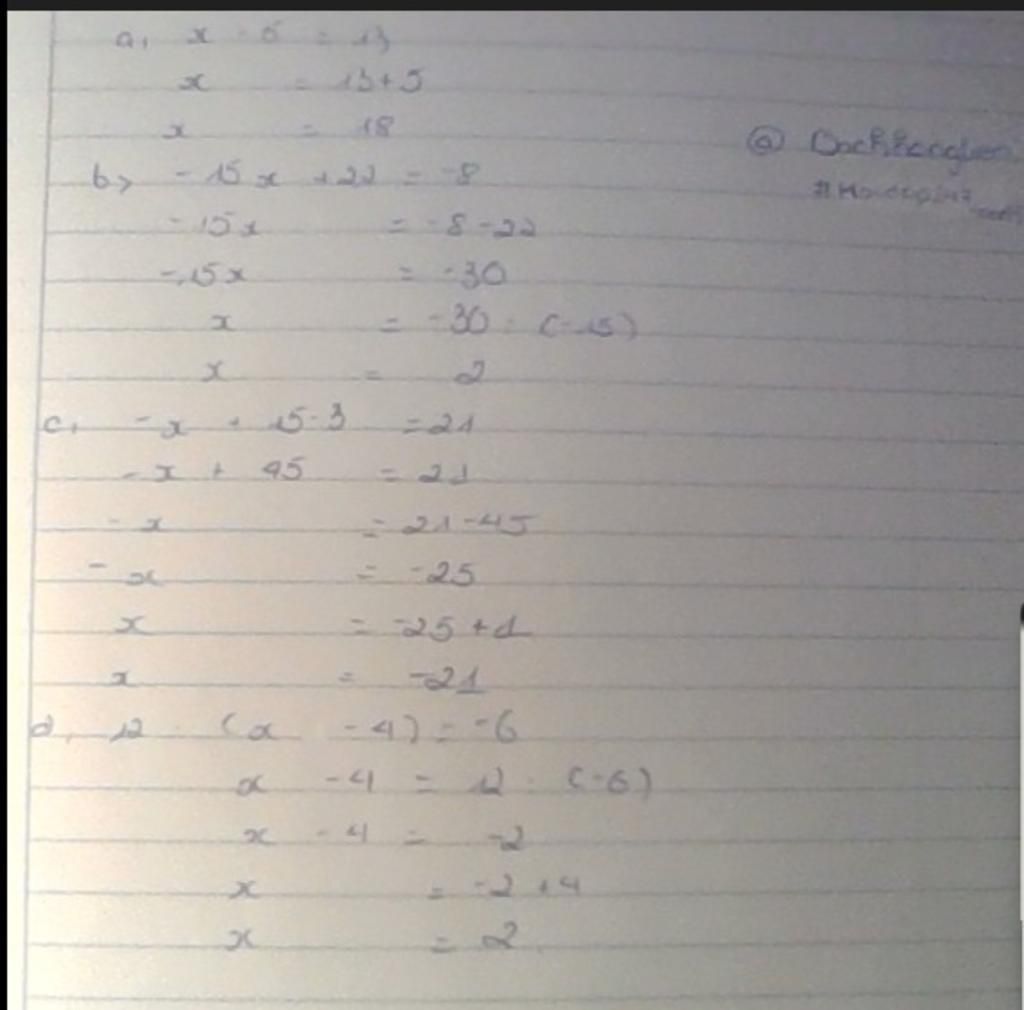 a, x - 5 = 13
x = 13+5
x = 18
b> -15x +22 = -8
-15x = -8-22
-15x = -30
x = -30 : (-15)
x = 2
c, -x + 15.3 = 21
-x + 45 = 21
-x = 21-45
-x = -25
x = -25+1
x = -21
d, 12 : (x - 4) = -6
x - 4 = 12 : (-6)
x - 4 = -2
x = -2+4
x = 2